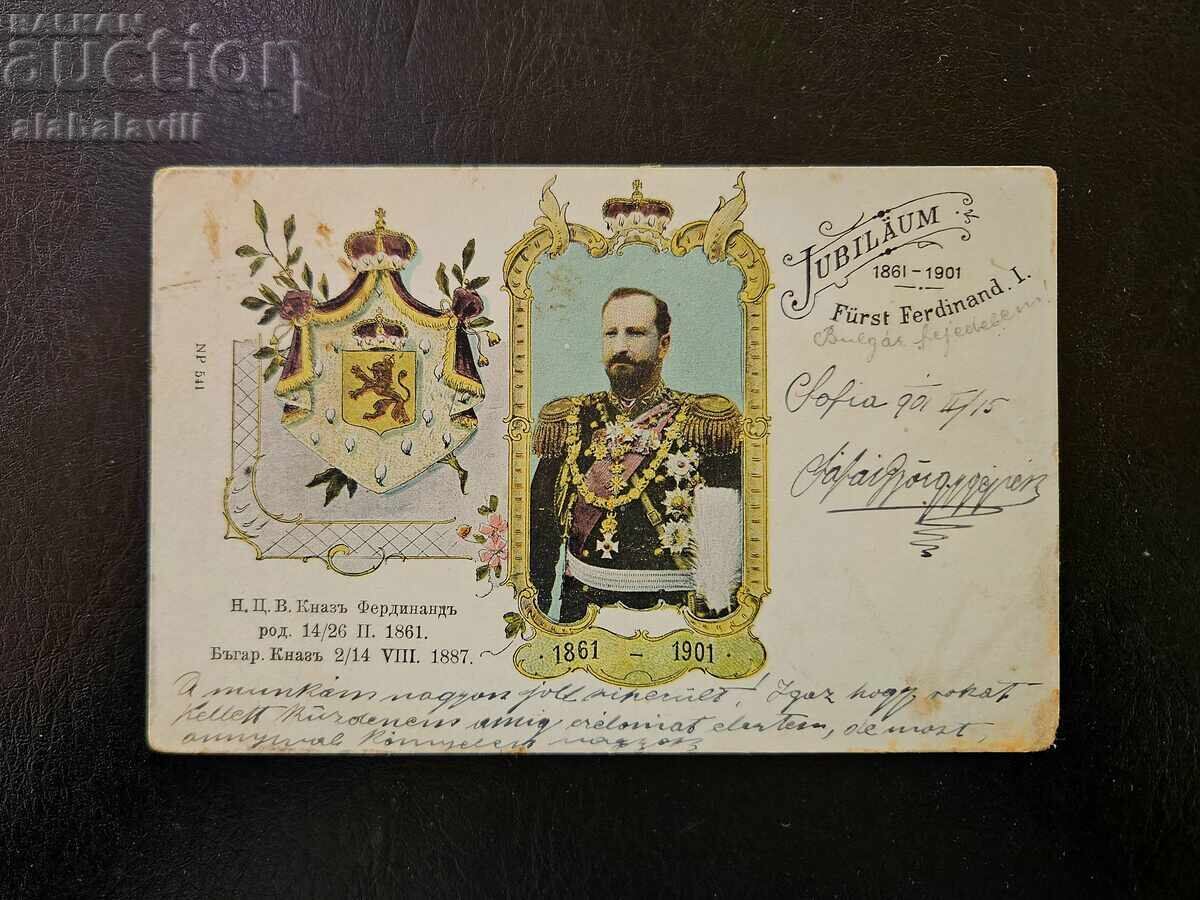 БАЛКАН
auction
alabalavill
JUBILÄUM
1861-1901
Fürst Ferdinand. I.
Bulgár fejedelem
Sofia 901 II/15
NP 541
Н. Ц. В. Кназъ Фердинандъ
род. 14/26 II. 1861.
Бъгар. Кназъ 2/14 VIII. 1887.
· 1861 - 1901 ·
A munkám nagyon jóll sikerült! Igaz hogy sokat
kellett küzdenem amig czélomat elértem, de most
annyival könnyebb